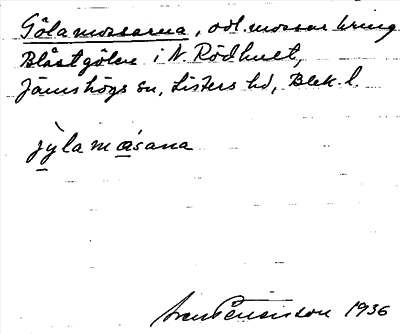 Gölamossarna, odl. mossar kring
Blåstgölen i N. Rödhult,
Jämshögs sn, Listers hd, Blek. l.
jylamåsana
1936